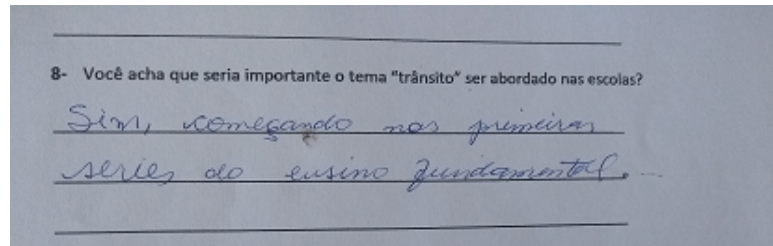 8- Você acha que seria importante o tema "trânsito" ser abordado nas escolas?
Sim, começando nas primeiras
series do ensino fundamental.